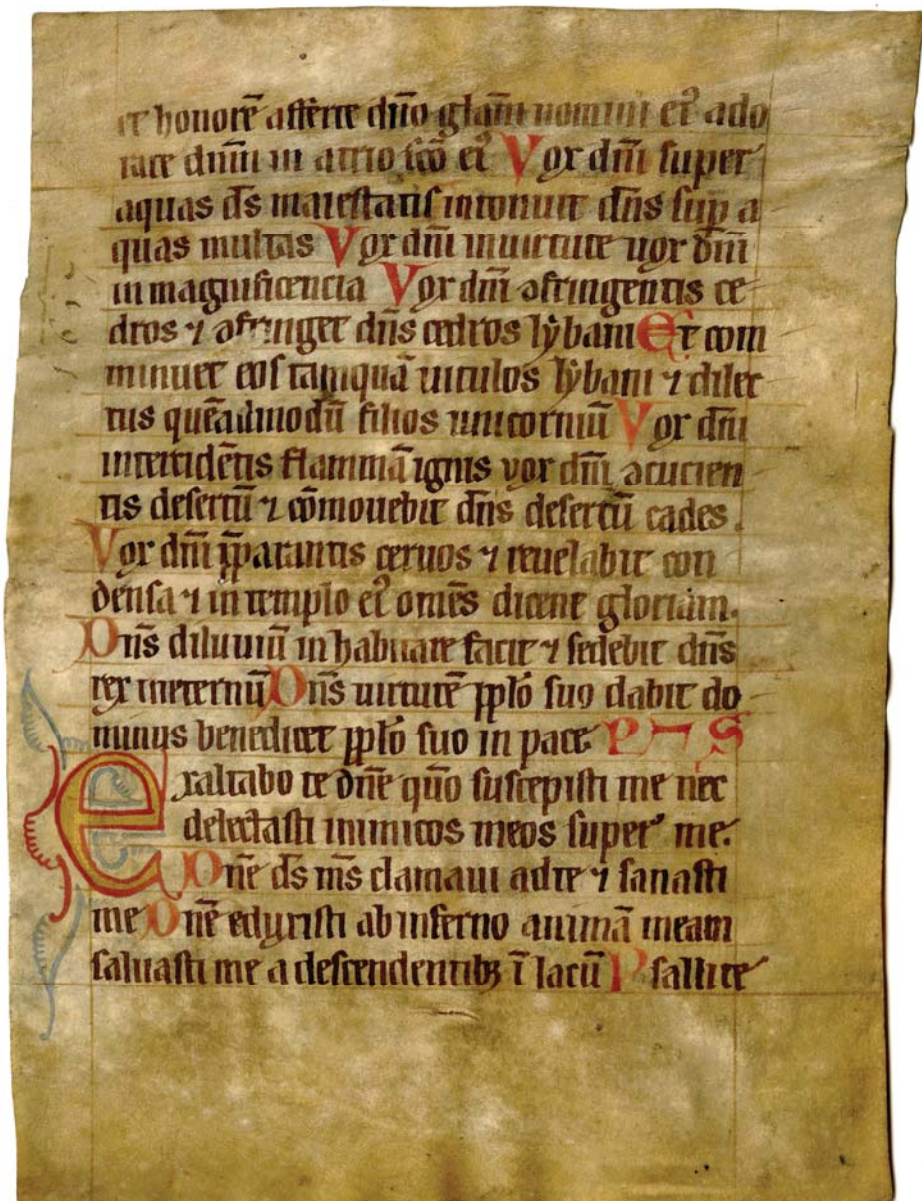 et honorē afferte dn̄o glām nomini eiꝰ ado
rate dn̄m in atrio sc̄o eiꝰ Vox dn̄i super
aquas ds̄ maiestatis intonuit dn̄s sup a
quas multas Vox dn̄i inuirtute uox dn̄i
in magnificencia Vox dn̄i ꝯfringentis ce
dros ⁊ ꝯfringet dn̄s cedros lẏbani Et com
minuet eos tamquā uitulos lẏbani ⁊ dilec
tus quēadmodū filios unicorniū Vox dn̄i
intercidētis flammā ignis vox dn̄i ꝯcucien
tis desertū ⁊ cōmouebit dn̄s desertū cades.
Vox dn̄i p̄parantis ceruos ⁊ reuelabit con
densa ⁊ in templo eiꝰ omēs dicent gloriam.
Dn̄s diluuiū in habitare facit ⁊ sedebit dn̄s
rex ineternū Dn̄s uirtutē pplō suo dabit do
minus benedicet pplō suo in pace P S
Exaltabo te dn̄e quō suscepisti me nec
delectasti inimicos meos super me.
Dn̄e ds̄ ms̄ clamaui adte ⁊ sanasti
me Dn̄e eduxisti ab inferno animā meam
saluasti me a descendentibꝫ ī lacū Psallite